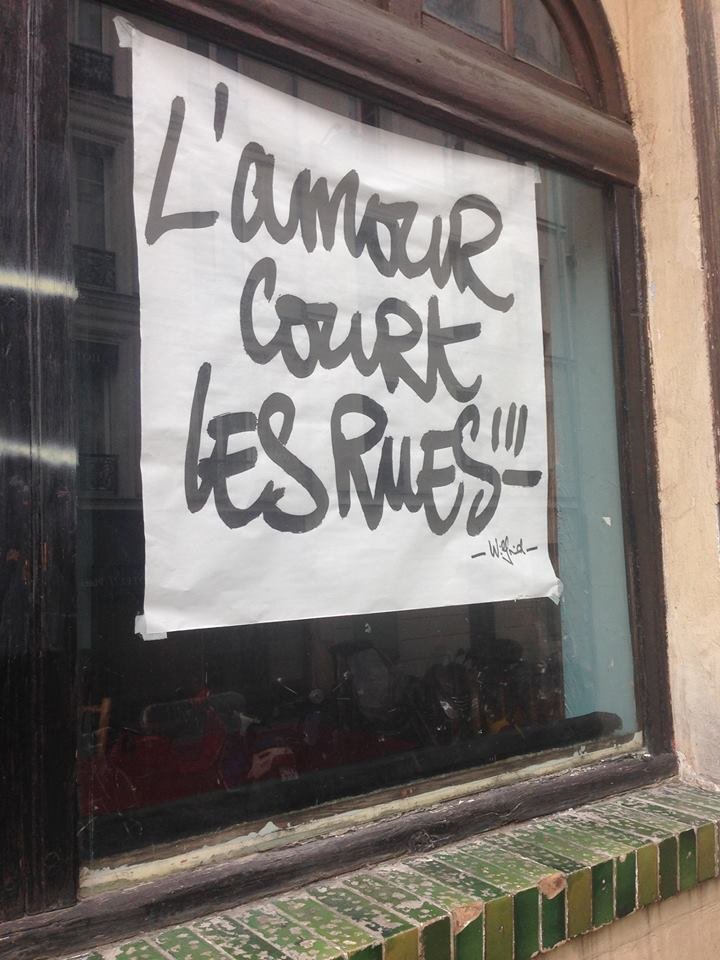 L'amour
court
les rues!!!
- Wilfrid -